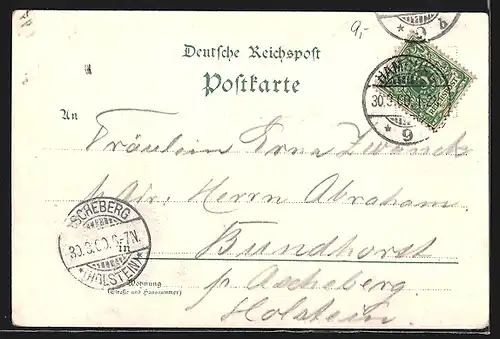 9,-
Deutsche Reichspost
Postkarte
An
Fräulein Erna
p. Adr. Herrn Abraham
Bundhorst
p Ascheberg
Holstein.
Wohnung
(Straße und Hausnummer)
HAMBURG
30.3.00.
* 9
ASCHEBERG
30.3.00. 6-7N.
* (HOLSTEIN) *